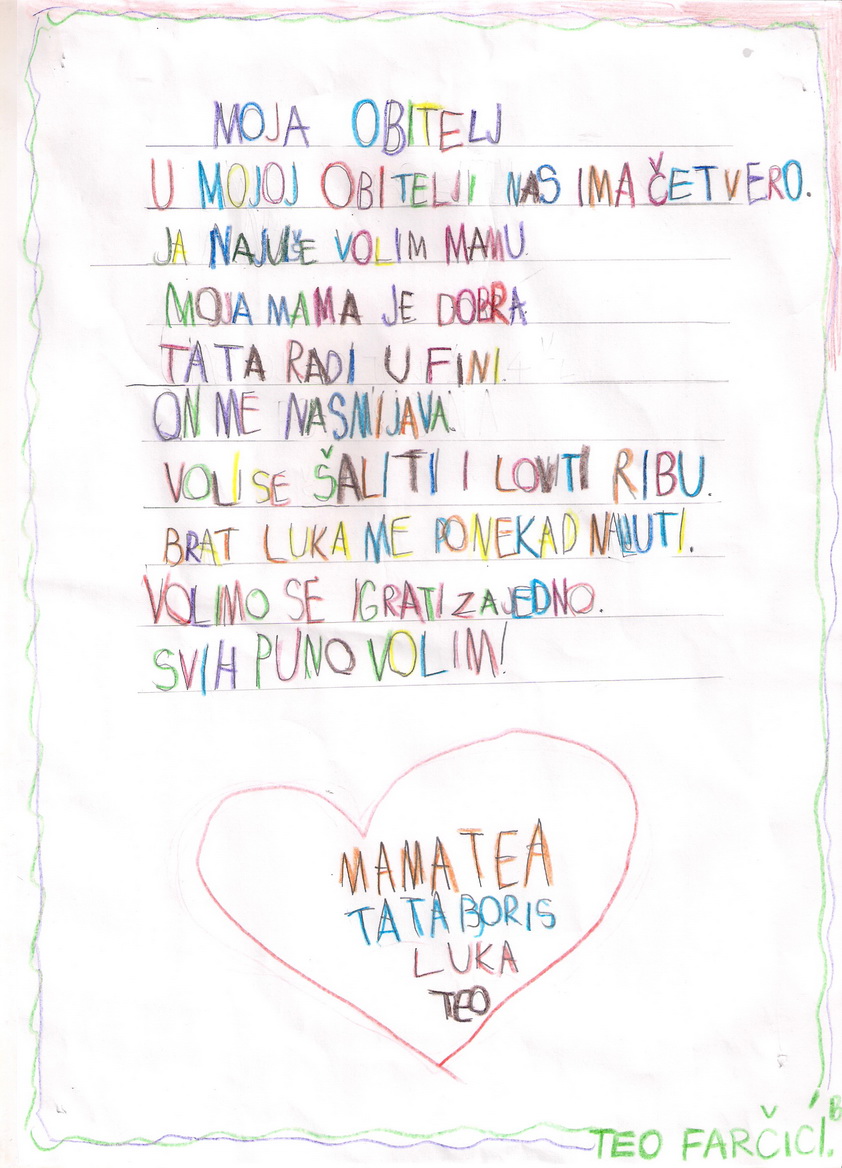 MOJA OBITELJ
U MOJOJ OBITELJI NAS IMA ČETVERO.
JA NAJVIŠE VOLIM MAMU
MOJA MAMA JE DOBRA
TATA RADI U FINI.
ON ME NASMIJAVA.
VOLI SE ŠALITI I LOVITI RIBU.
BRAT LUKA ME PONEKAD NALJUTI.
VOLIMO SE IGRATI ZAJEDNO.
SVIH PUNO VOLIM!
MAMA TEA
TATA BORIS
LUKA
TEO
TEO FARČIĆ 1. B